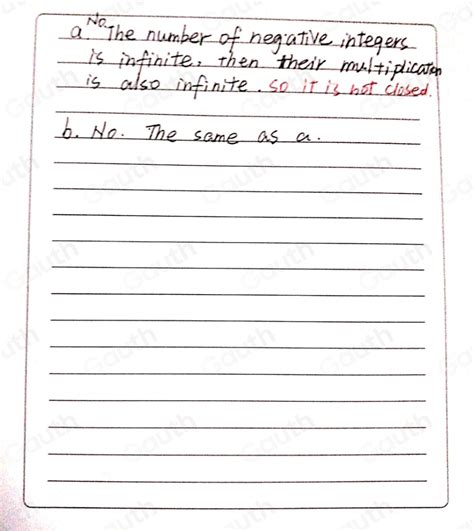 a. No. The number of negative integers
is infinite, then their multiplication
is also infinite. so it is not closed.
b. No. The same as a.
Gauth